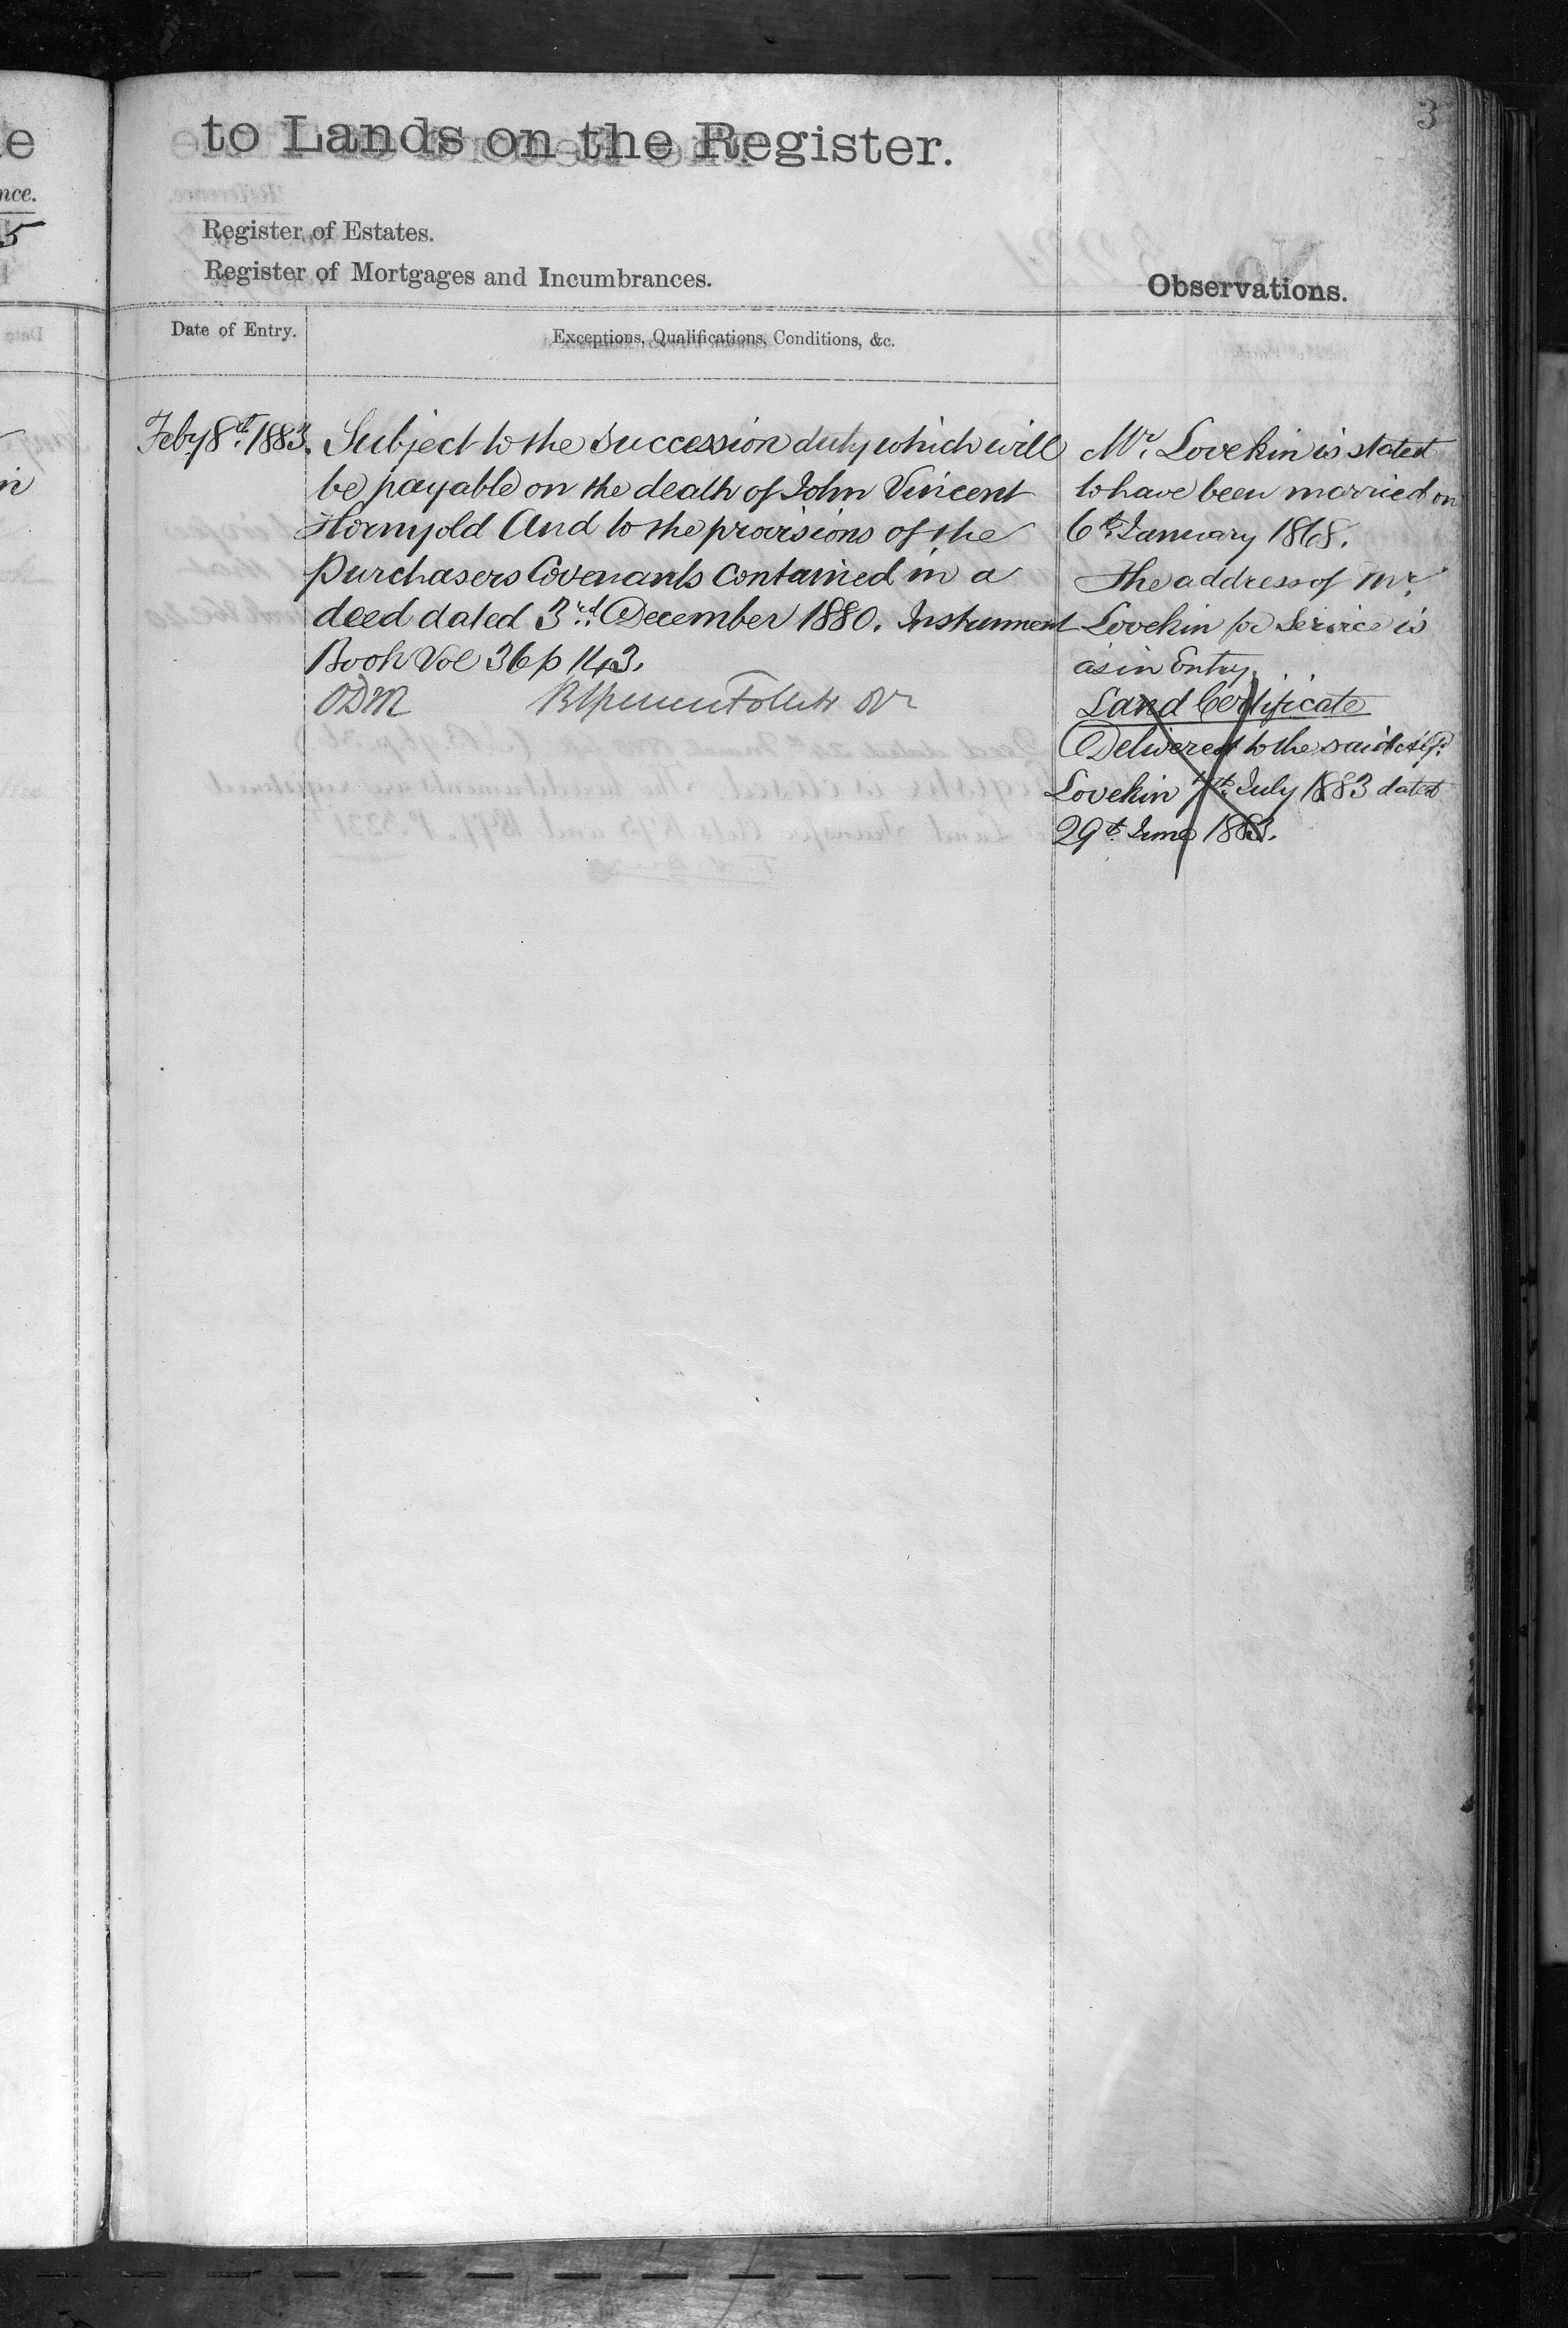 3
to Lands on the Register.
Register of Estates.
Register of Mortgages and Incumbrances.
Observations.
Date of Entry.
Exceptions, Qualifications, Conditions, &c.
Feby 8th. 1883.
Subject to the succession duty which will
be payable on the death of John Vincent
Hornyold And to the provisions of the
Purchasers Covenants contained in a
deed dated 3rd. December 1880. Instrument
Book Vol 36 p 143.
ODM
Mr. Lovekin is stated
to have been married on
6th. January 1868.
The address of Mr.
Lovekin for Service is
as in Entry.
Land Certificate
Delivered to the said Alfd.
Lovekin July 1883 dated
29th. June 1883.